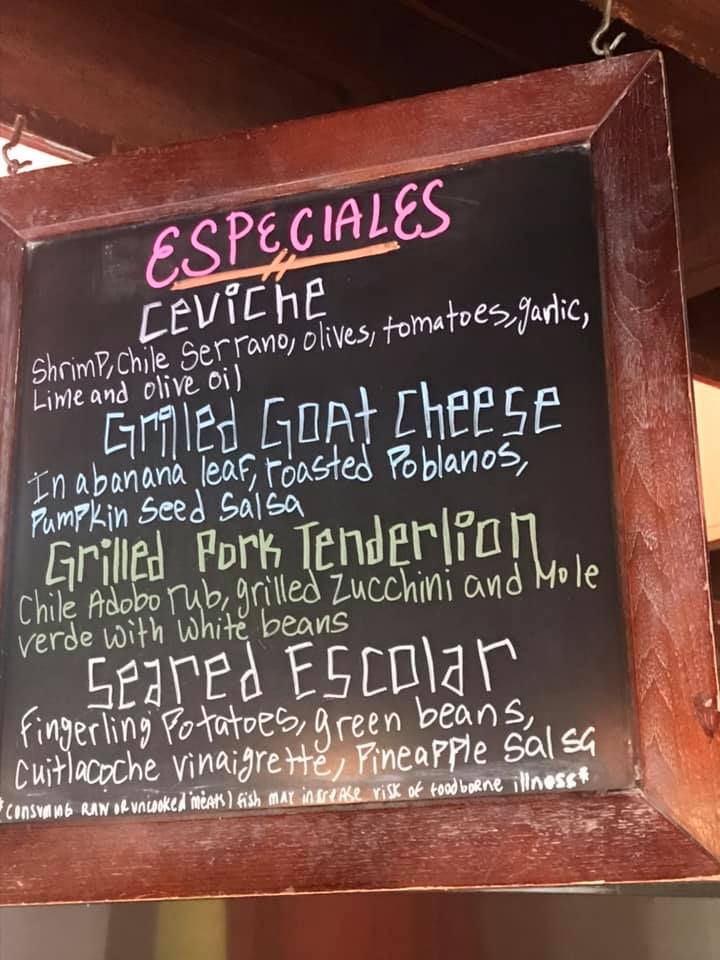 ESPECIALES
Ceviche
Shrimp, Chile Serrano, olives, tomatoes, garlic,
Lime and olive oil
Grilled Goat Cheese
In a banana leaf, roasted Poblanos,
Pumpkin Seed Salsa
Grilled Pork Tenderlion
Chile Adobo rub, grilled Zucchini and Mole
verde with white beans
Seared Escolar
Fingerling Potatoes, green beans,
Cuitlacoche vinaigrette, Pineapple Salsa
*Consuming RAW OR uncooked meats) fish may increase risk of foodborne illness*